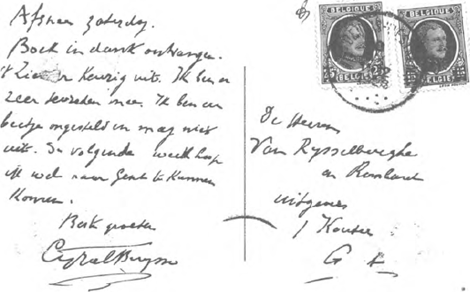 Afsnee zaterdag.
Boek in dank ontvangen.
't Ziet er keurig uit. Ik ben er
zeer tevreden mee. Ik ben een
beetje ongesteld en mag niet
uit. In volgende week hoop
ik wel naar Gent te kunnen
komen.
Beste groeten
Cyriel Buysse
BELGIQUE
BELGIË
BELGIQUE
BELGIË
De Heeren
Van Rysselberghe
en Rombaut
uitgevers
1 Kouter